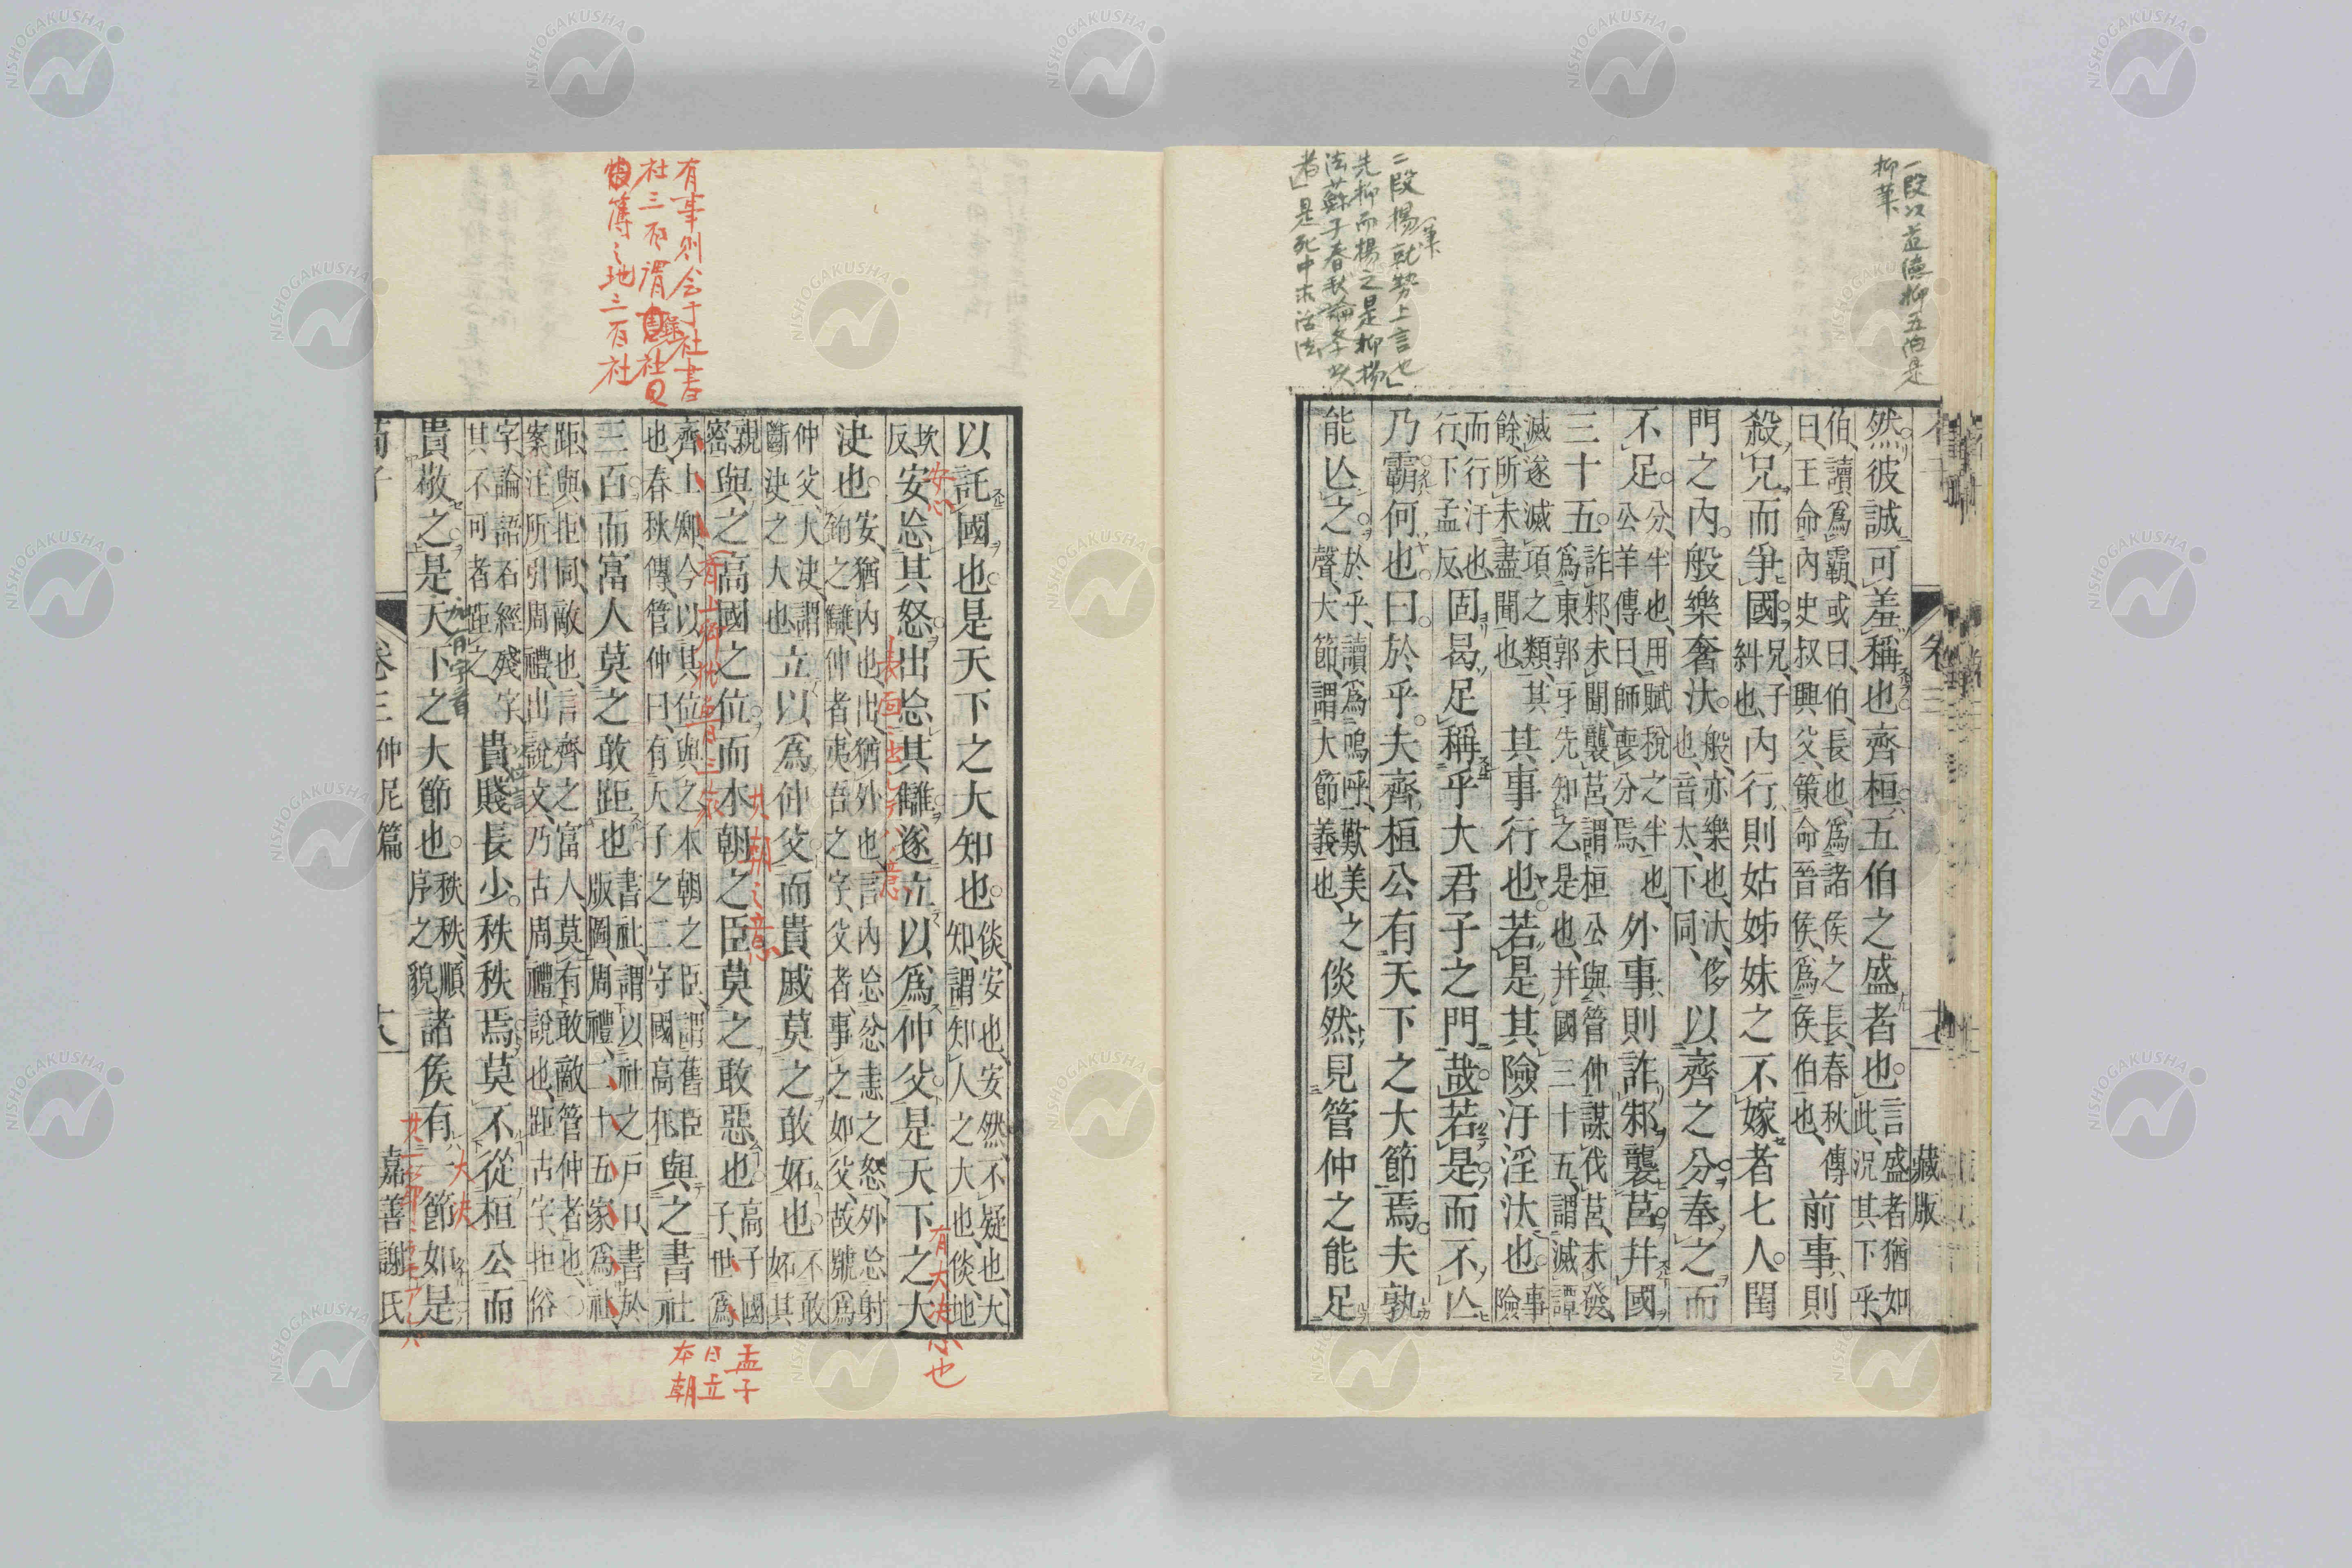 一段以道德抑五伯是
抑筆
二段揚就勢上言也
筆
先抑而揚之是抑揚
法蘇子春秋論多以
者是死中求活法
卷三 藏版
然彼誠可羞稱也齊桓五伯之盛者也言盛者猶如此況其下乎
伯讀爲霸或曰伯長也爲諸侯之長春秋傳曰王命內史叔興父策命晉侯爲侯伯也前事則
殺兄而爭國兄子糾也內行則姑姊妹之不嫁者七人閨
門之內般樂奢汰般亦樂也汰侈也音太下同以齊之分奉之而
不足分半也用賦稅之半也公羊傳曰師喪分焉外事則詐邾襲莒幷國
三十五詐邾未聞襲莒謂桓公與管仲謀伐莒未發爲東郭牙先知之是也幷國三十五謂滅譚
滅遂滅項之類其餘所未盡聞也其事行也若是其險汙淫汰也事險
而行汙也行下孟反固曷足稱乎大君子之門哉若是而不亾
乃霸何也曰於乎夫齊桓公有天下之大節焉夫孰
能亾之於乎讀爲嗚呼歎美之聲大節謂大節義也倓然見管仲之能足
有事則会于社書
社三百謂書社
簿之地三百社
以託國也是天下之大知也倓安也安然不疑也大知謂知人之大也倓地
坎反安忘其怒出忘其讎遂立以爲仲父是天下之大
決也安猶內也出猶外也言內忘忿恚之怒外忘射鉤之讎仲者夷吾之字父者事之如父故號爲
仲父大決謂斷決之大也立以爲仲父而貴戚莫之敢妬也不敢妬其
親密與之高國之位而本朝之臣莫之敢惡也高子國子世爲
齊上卿今以其位與之本朝之臣謂舊臣也春秋傳管仲曰有天子之二守國高在與之書社
三百而富人莫之敢距也書社謂以社之戶口書於版圖周禮二十五家爲社
距與拒同敵也言齊之富人莫有敢敵管仲者也○案注所引周禮出說文乃古周禮說也距古字拒俗
字論語石經殘字其不可者距之貴賤長少秩秩焉莫不從桓公而
貴敬之是天下之大節也秩秩順序之貌諸侯有一節如是
荀子 卷三仲尼篇 十八 嘉善謝氏
有大決
孟子
曰立
本朝
NISHOGAKUSHA